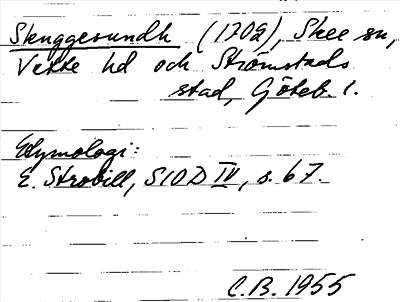 Skuggesundh (1202), Skee sn,
Vette hd och Strömstads
stad, Göteb. l.
Etymologi:
E. Strobill, SIOD IV, s. 67.
C.B. 1955